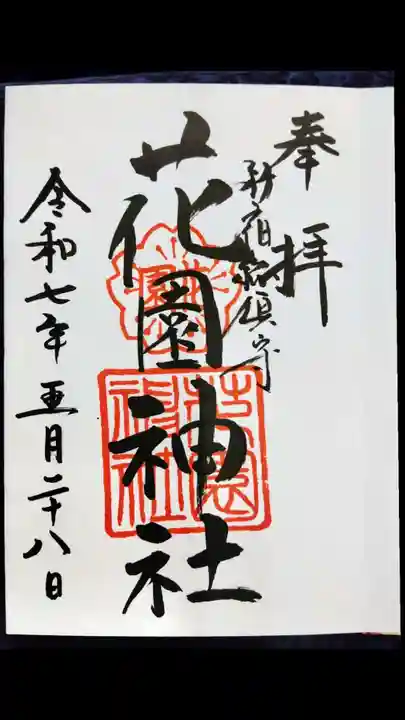 奉拝
新宿総鎮守
花園神社
花園神社
令和七年五月二十八日